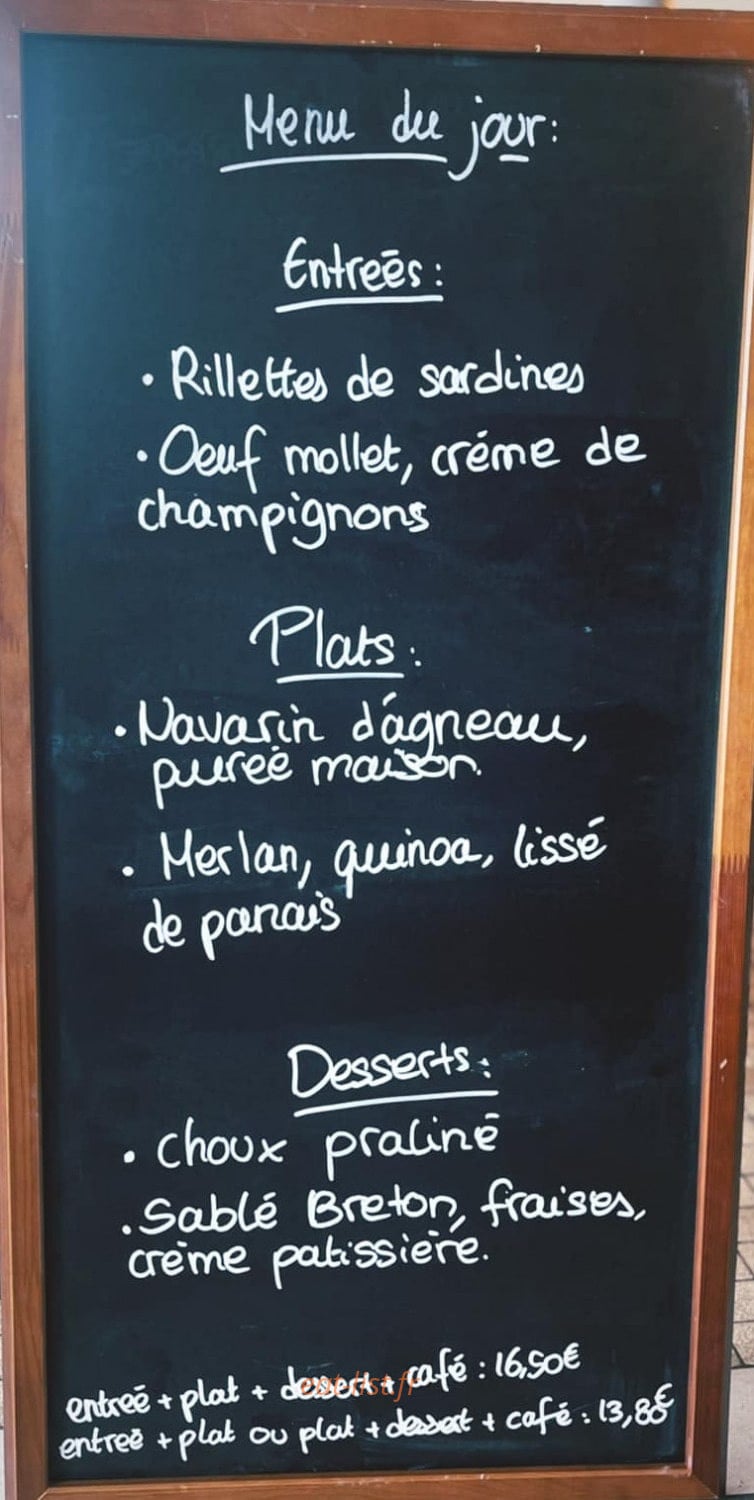 Menu du jour:
Entreēs:
• Rillettes de sardines
• Oeuf mollet, créme de
champignons
Plats:
• Navarin d'agneau,
pureē maison.
• Merlan, quinoa, lissé
de panais
Desserts:
• Choux praliné
• Sablé Breton, fraises,
crème patissière.
entreē + plat + dessert + café : 16,50€
eat-list.fr
entreē + plat ou plat + dessert + café : 13,80€